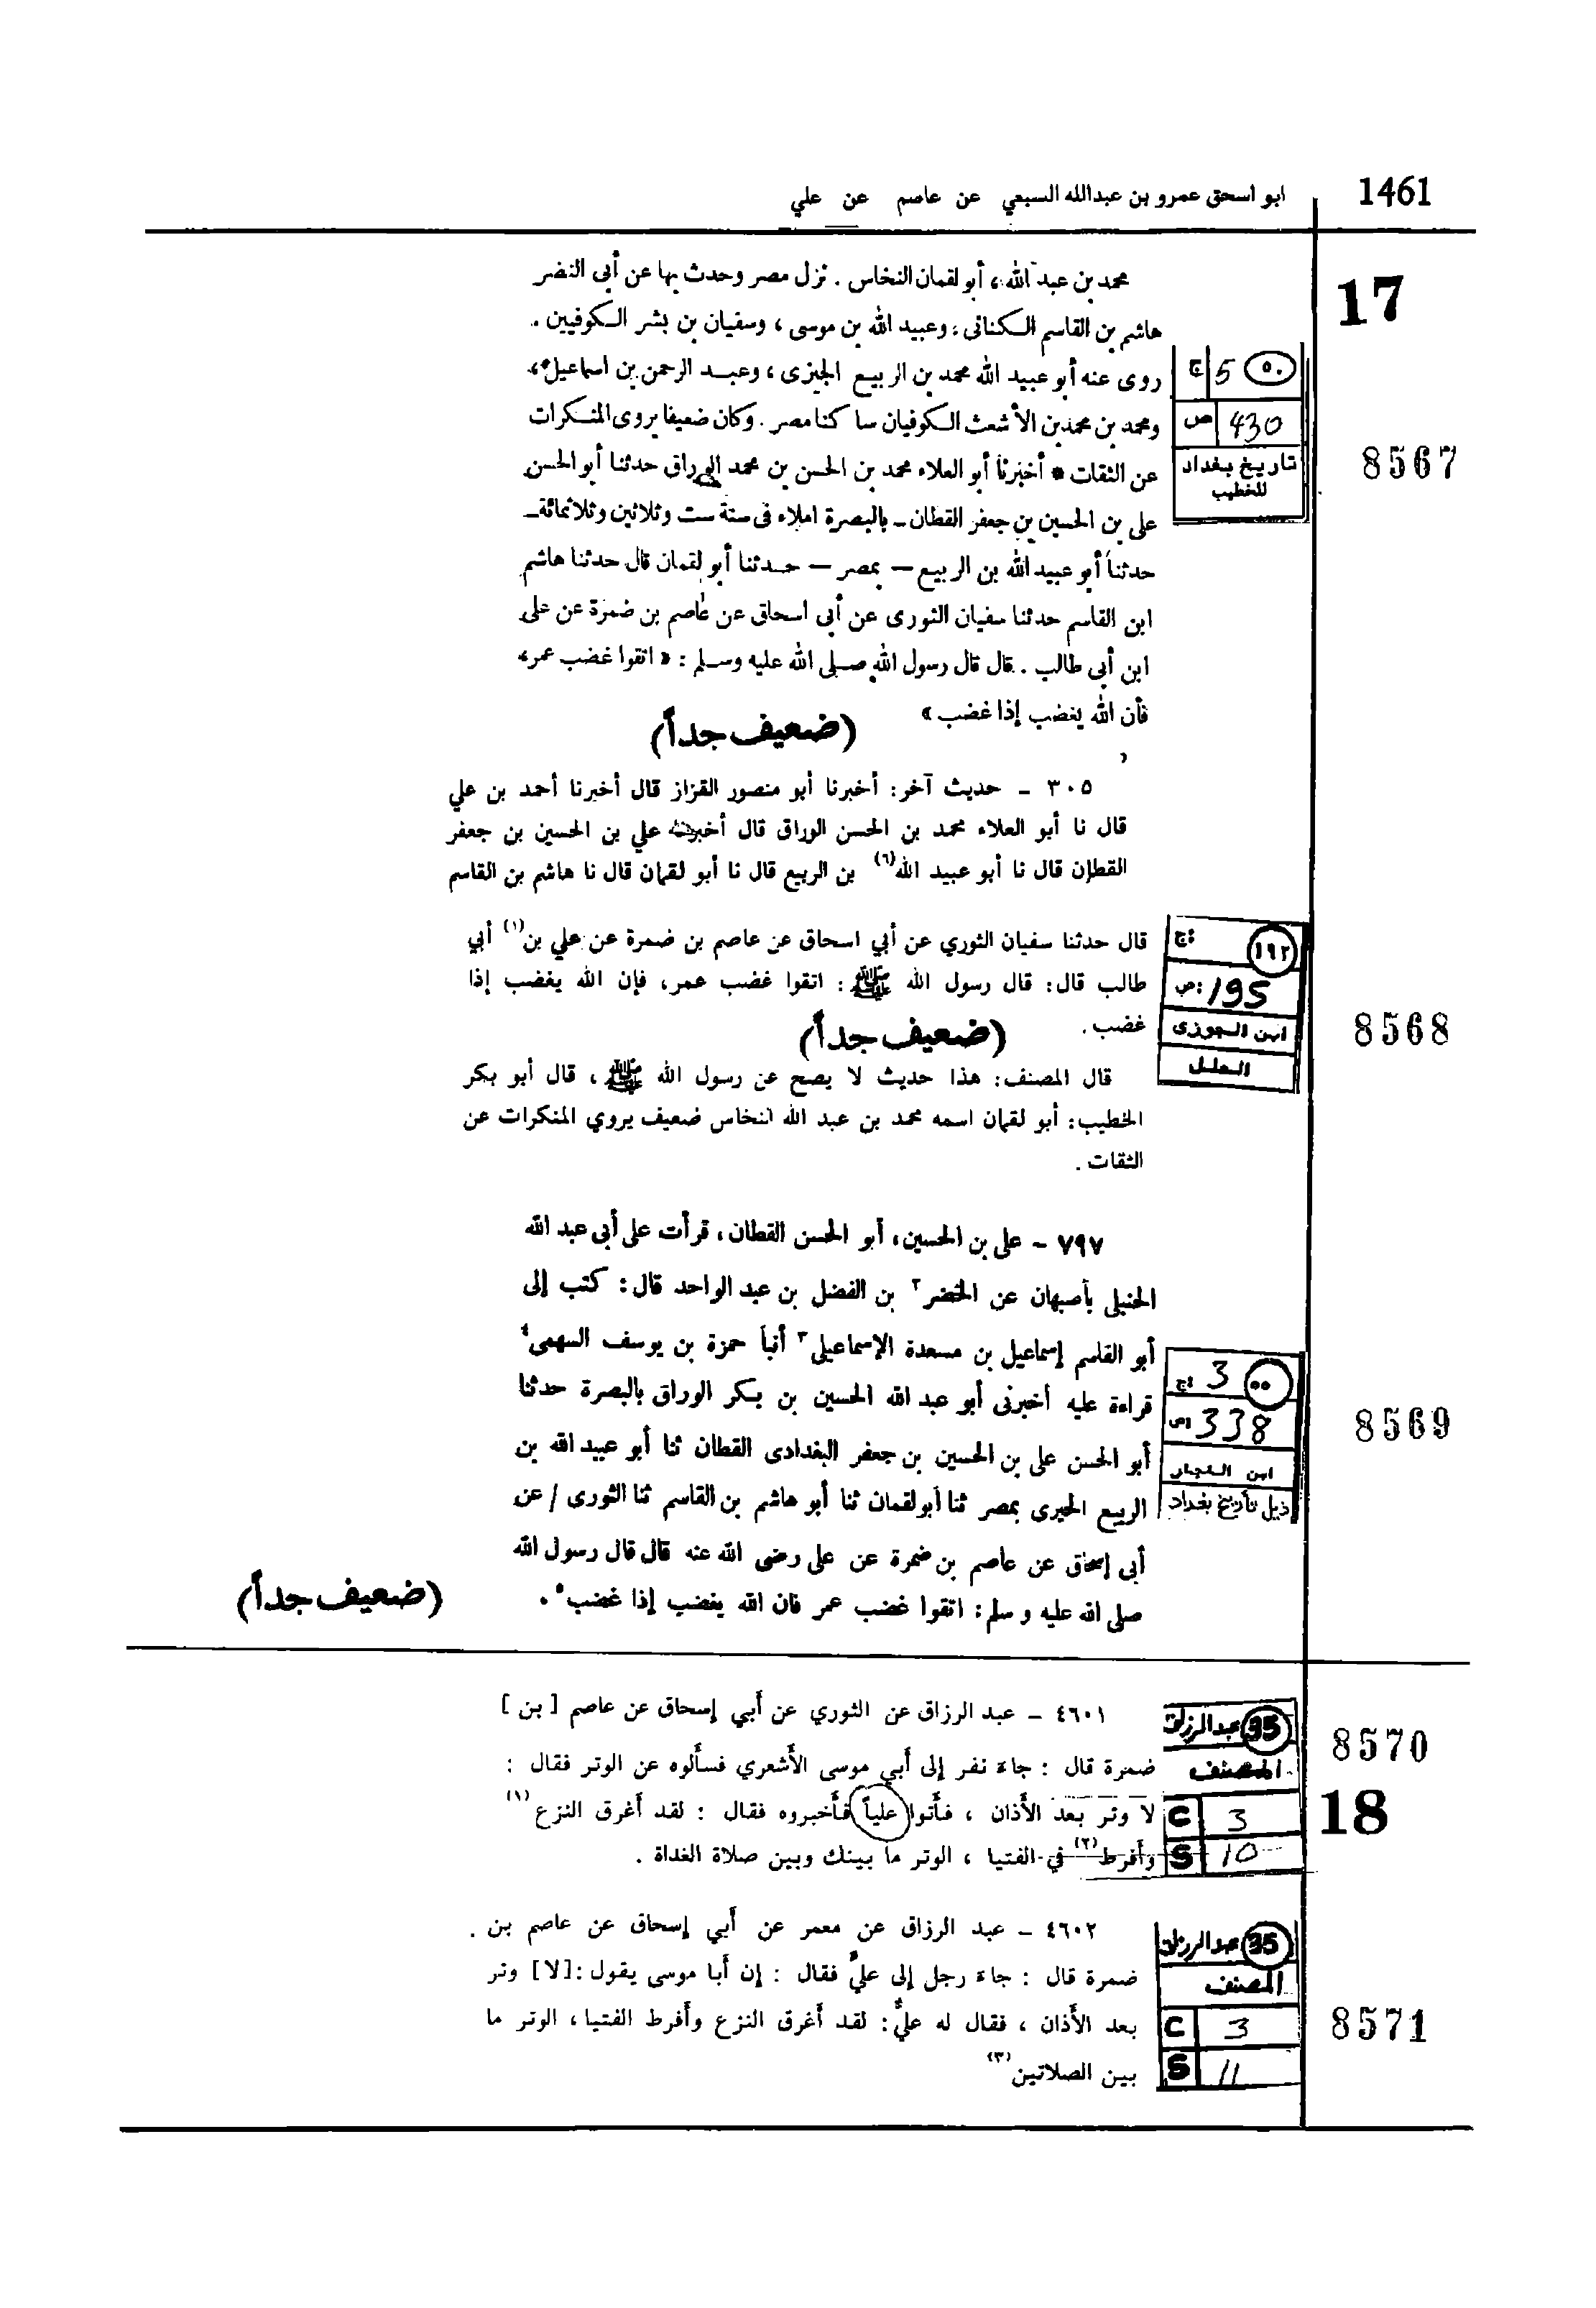 1461
ابو اسحق عمرو بن عبدالله السبعي عن عاصم عن علي
17
محمد بن عبد الله ، أبو لقمان النخاس . نزل مصر وحدث بها عن أبى النضر
هاشم بن القاسم الكنانى ، وعبيد الله بن موسى ، وسفيان بن بشر الكوفيين .
روى عنه أبو عبيد الله محمد بن الربيع الجيزى ، وعبد الرحمن بن اسماعيل ،
ومحمد بن محمد بن الأشعث الكوفيان ساكنا مصر . وكان ضعيفا يروى المنكرات
عن الثقات * أخبرنا أبو العلاء محمد بن الحسن بن محمد الوراق حدثنا أبو الحسن
على بن الحسين بن جعفر القطان ـ بالبصرة املاء فى سنة ست وثلاثين وثلاثمائة ـ
حدثنا أبو عبيد الله بن الربيع — بمصر — حدثنا أبو لقمان قال حدثنا هاشم
ابن القاسم حدثنا سفيان الثورى عن أبى اسحاق عن عاصم بن ضمرة عن على
ابن أبى طالب . قال قال رسول الله صلى الله عليه وسلم : « اتقوا غضب عمر ،
فأن الله يغضب إذا غضب »
(ضعيف جداً)
ج 5 ٥٠
ص 430
تاريخ بغداد
للخطيب
8567
٣٠٥ ـ حديث آخر: أخبرنا أبو منصور القزاز قال أخبرنا أحمد بن علي
قال نا أبو العلاء محمد بن الحسن الوراق قال أخبرنا علي بن الحسين بن جعفر
القطان قال نا أبو عبيد الله(٦) بن الربيع قال نا أبو لقمان قال نا هاشم بن القاسم
قال حدثنا سفيان الثوري عن أبي اسحاق عن عاصم بن ضمرة عن علي بن(١) أبي
طالب قال: قال رسول الله ﷺ: اتقوا غضب عمر، فإن الله يغضب إذا
غضب.
(ضعيف جداً)
ج: ١٩٢
ص: 195
ابن الجوزى
العلل
8568
قال المصنف: هذا حديث لا يصح عن رسول الله ﷺ، قال أبو بكر
الخطيب: أبو لقمان اسمه محمد بن عبد الله النخاس ضعيف يروي المنكرات عن
الثقات.
٧٩٧ - على بن الحسين، أبو الحسن القطان، قرأت على أبى عبد الله
الحنبلى بأصبهان عن الخضر٢ بن الفضل بن عبد الواحد قال: كتب إلى
أبو القاسم إسماعيل بن مسعدة الإسماعيلى٣ أنبأ حمزة بن يوسف السهمى٤
قراءة عليه أخبرنى أبو عبد الله الحسين بن بكر الوراق بالبصرة حدثنا
أبو الحسن على بن الحسين بن جعفر البغدادى القطان ثنا أبو عبيد الله بن
الربيع الحيرى بمصر ثنا أبو لقمان ثنا أبو هاشم بن القاسم ثنا الثورى / عن
أبى إسحاق عن عاصم بن ضمرة عن على رضى الله عنه قال قال رسول الله
صلى الله عليه و سلم: اتقوا غضب عمر فان الله يغضب إذا غضب٥.
(ضعيف جداً)
ج: 3
ص: 338
ابن النجار
ذيل تأريخ بغداد
8569
٤٦٠١ ـ عبد الرزاق عن الثوري عن أبي إسحاق عن عاصم [ بن ]
ضمرة قال : جاءَ نفر إلى أبي موسى الأَشعري فسأَلوه عن الوتر فقال :
لا وتر بعد الأَذان ، فأَتوا علياً فأَخبروه فقال : لقد أَغرق النزع(١)
وأَفرط(٢) في الفتيا ، الوتر ما بينك وبين صلاة الغداة .
عبدالرزاق 35
المصنف
C 3
S 10
8570
18
٤٦٠٢ ـ عبد الرزاق عن معمر عن أَبي إسحاق عن عاصم بن
ضمرة قال : جاءَ رجل إلى عليٍّ فقال : إن أَبا موسى يقول :[لا] وتر
بعد الأَذان ، فقال له عليٌّ: لقد أَغرق النزع وأَفرط الفتيا، الوتر ما
بين الصلاتين(٣)
عبدالرزاق 35
المصنف
C 3
S 11
8571